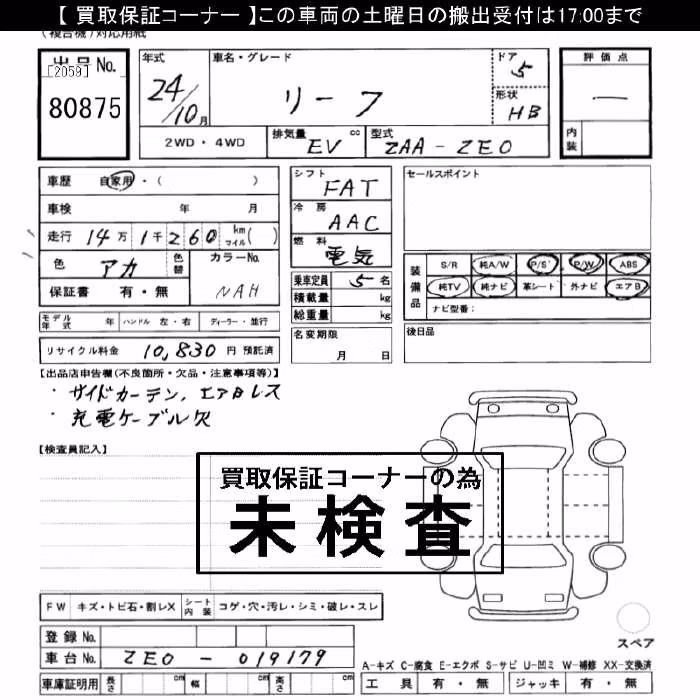 【 買取保証コーナー 】この車両の土曜日の搬出受付は17:00まで
(複合機)対応用紙
出品No.
[2059]
80875
年式
24/10月
車名・グレード
リーフ
ドア
5
形状
HB
評価点
—
内装
2WD・4WD
排気量
EV
cc
型式
ZAA-ZE0
車歴 自家用・( )
車検 年 月
走行 14万1千260 km マイル( )
色 アカ
色替
カラーNo.
NAH
保証書 有・無
モデル年式 年 ハンドル 左・右 ディーラー・並行
リサイクル料金 10,830 円 預託済
シフト
FAT
冷房
AAC
燃料
電気
乗車定員 5名
積載量 kg
総重量 kg
名変期限
月 日
セールスポイント
装備品
S/R 純A/W P/S P/W ABS
純TV 純ナビ 革シート 外ナビ エアB
ナビ型番:
後日品
【出品店申告欄(不良箇所・欠品・注意事項等)】
・サイドカーテン,エアBレス
・充電ケーブル欠
【検査員記入】
買取保証コーナーの為
未検査
FW キズ・トビ石・割レX シート内装 コゲ・穴・汚レ・シミ・破レ・スレ
登録No.
車台No. ZE0-019179
車庫証明用 長さ cm 幅 cm 高さ cm
スペア
A-キズ C-腐食 E-エクボ S-サビ U-凹ミ W-補修 XX-交換済
工具 有・無 ジャッキ 有・無